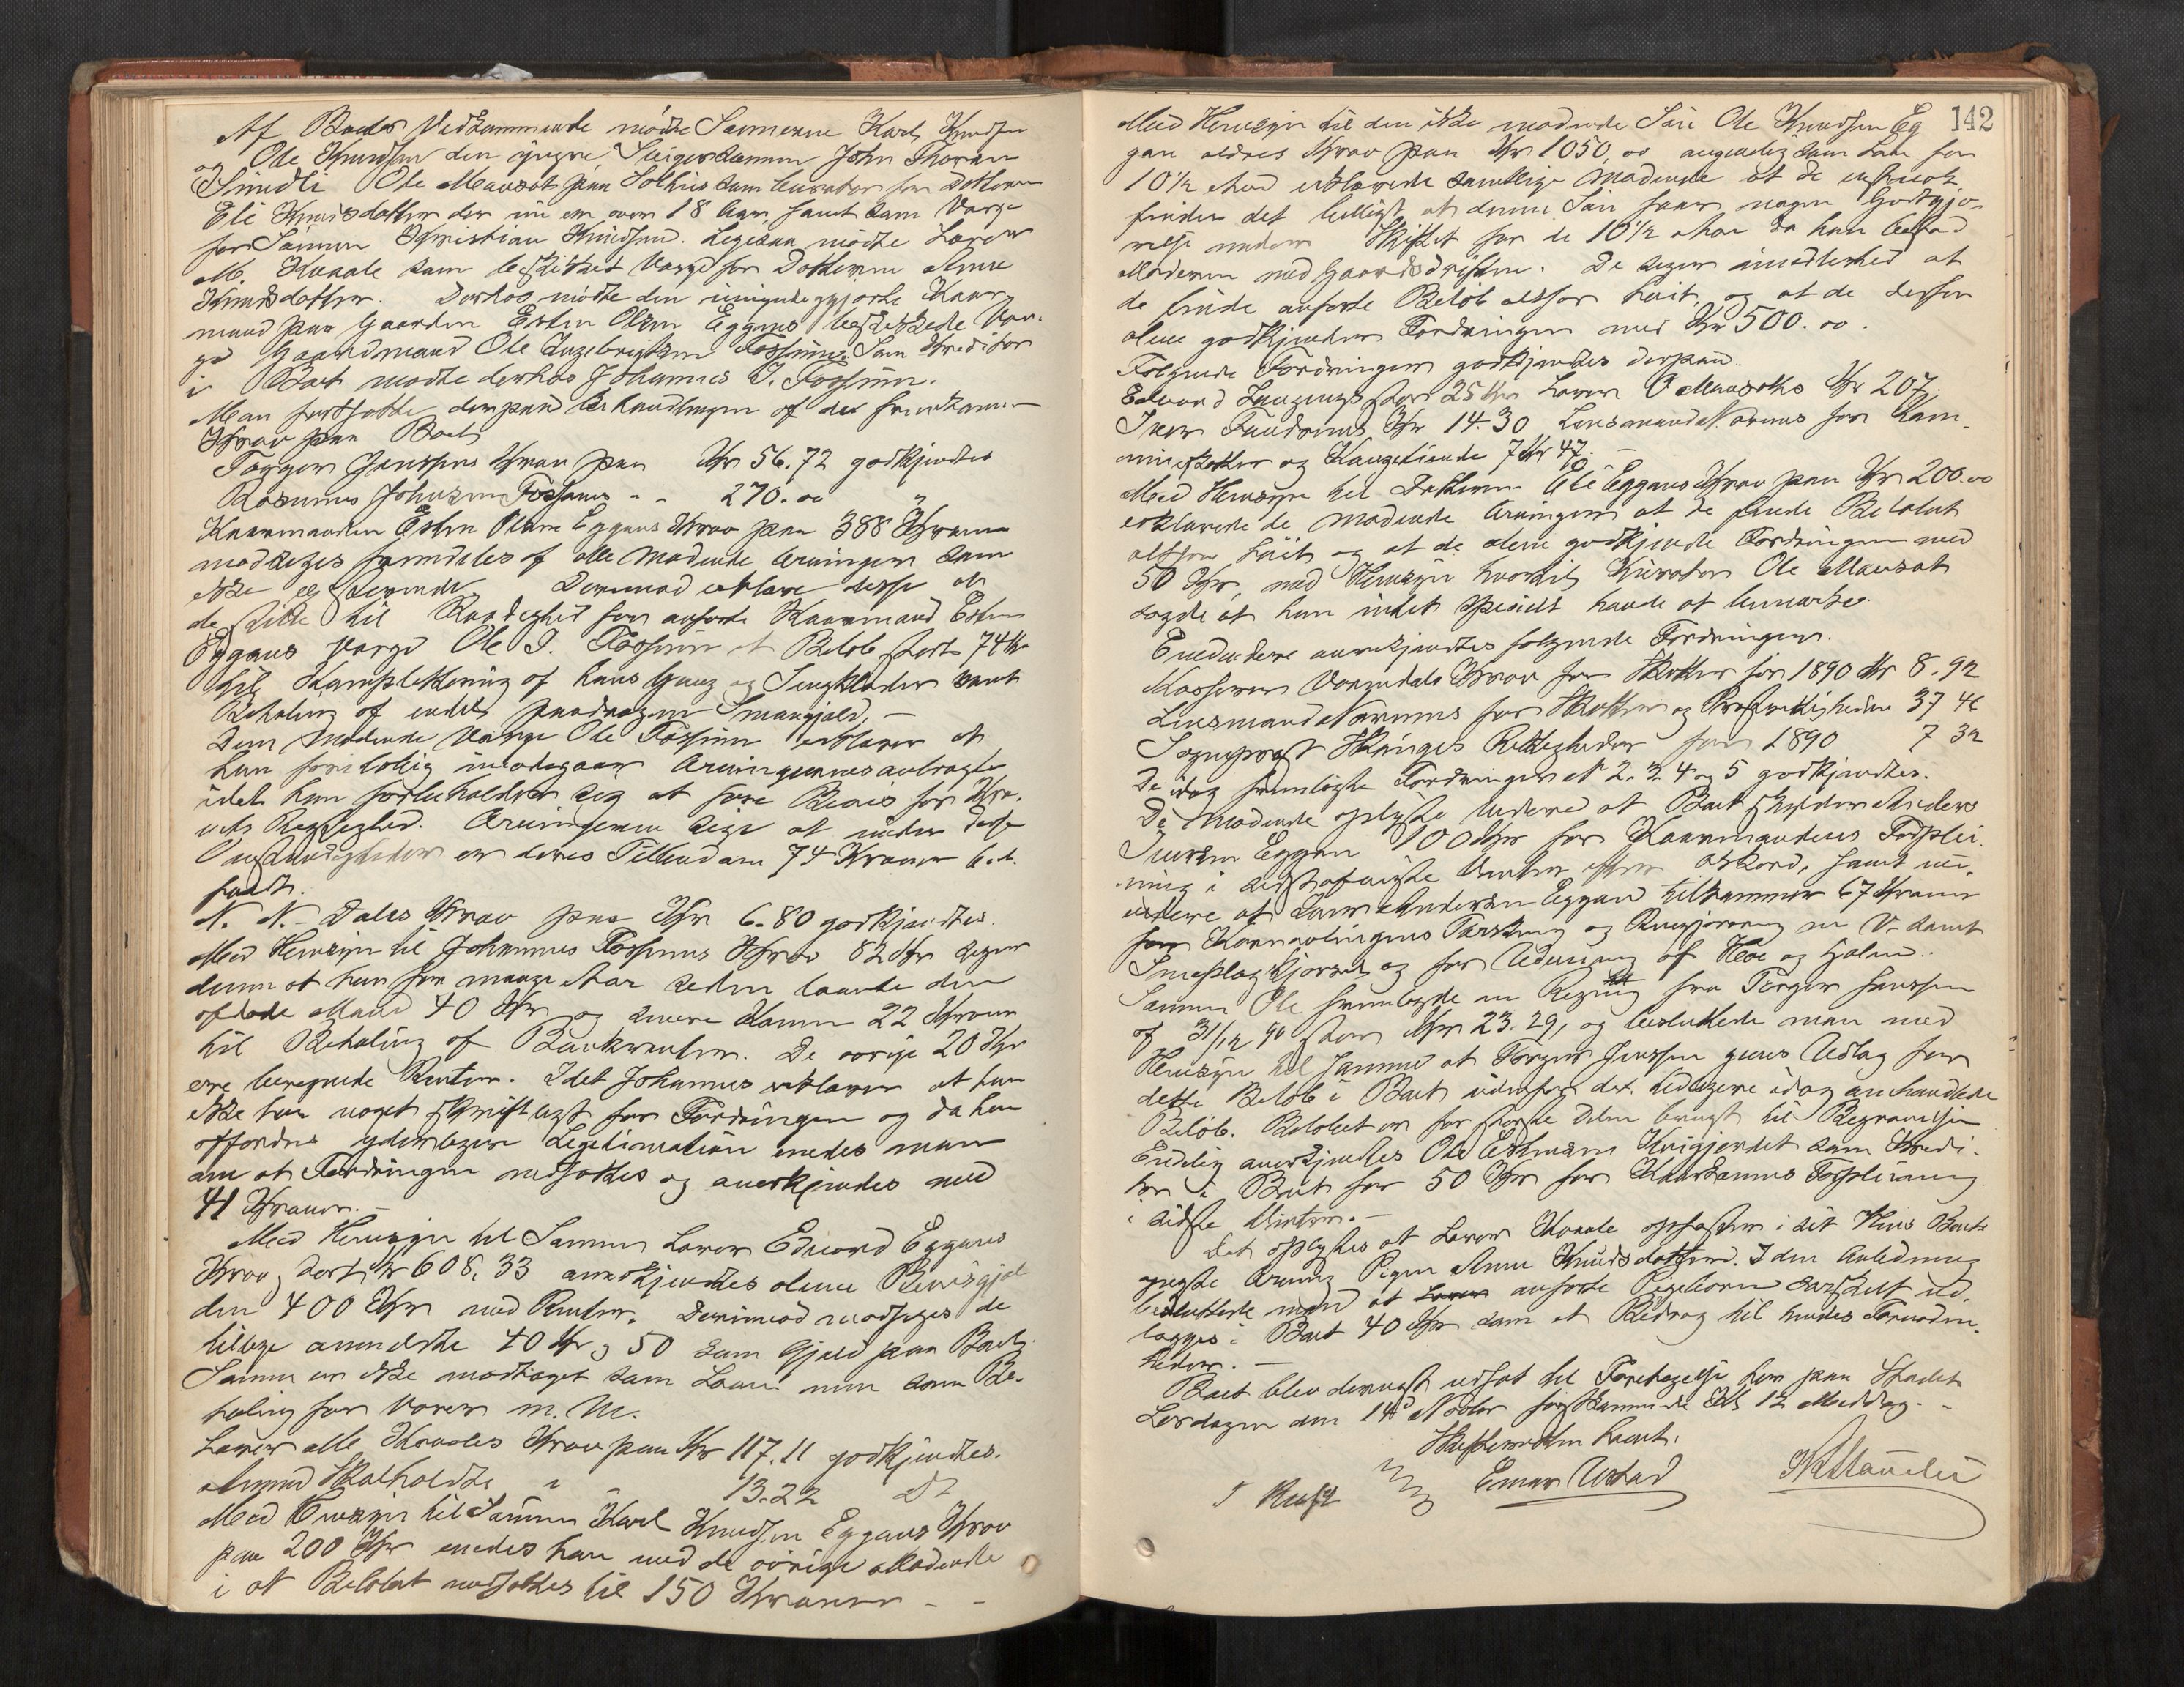 Af Boets Vedkommende mødte Sønnerne Karl Knudsen
og Ole Knudsen den yngre, Svigersønnen John Thoresen
Ole Mausæt paa som Curator for Datteren
Eli Knudsdatter der nu er over 18 Aar samt som Værge
for Sønnen Kristian Knudsen. Ligesaa mødte Lærer
M. Kvaale som beskikket Værge for Datteren Anne
Knudsdatter. Derhos mødte den umyndiggjorte Kaar-
mand paa Gaarden Esten Olsen Eggens beskikkede Vær-
ge Gaardmand Ole Ingebrigtsen Fossum. Som Kreditor
i Boet mødte derhos Johannes J. Fossum.
Man fortsatte derpaa Behandlingen af de fremkomne
Krav paa Boet
Torger Jenssens Krav paa Kr 56.72 godkjendtes
Rasmus Johnsen Fossums - - 270.00 "
Kaarmanden Esten Olsen Eggens Krav paa 388 Kroner
modsiges fremdeles af alle mødende Arvinger som
ikke Derimod erklærer disse at
de stille til Raadighed for anførte Kaarmand Esten
Eggens Værge Ole I. Fossum et Beløb stort 74 Kr
til Komplettering af hans Gang og Sengklæder samt
Betaling af endel paadragen Smaagjæld. –
Den mødende Værge Ole Fossum erklærer at
han foreløbig imødegaar Arvingernes
idet han forbeholder sig at føre Bevis for Kra-
vets Rigtighed. Arvingerne siger at under disse
Omstændigheder er deres Tilbud om 74 Kroner bort-
faldt.
N. N. Dales Krav paa Kr 6.80 godkjendtes.
Med Hensyn til Johannes Fossums Krav 82 Kr siger
denne at han for mange Aar siden laante den
afdøde Mand 40 Kr og senere Konen 22 Kroner
til Betaling af Bankrenter. De øvrige 20 Kr
ere beregnede Renter. Idet Johannes erklærer at han
ikke har noget skriftligt for Fordringen og da han
opfordres yderligere Legitimation enedes man
om at Fordringen nedsættes og anerkjendes med
41 Kroner. –
Med Hensyn til Sønnen Lærer Edvard Eggens
Krav, stort Kr 608,33 anerkjendtes alene Bevisgjæl
den 400 Kr med Renter. Derimod modsiges de
tillige anmeldte 40 Kr og 50 som Gjæld paa Boet.
Samme er ikke modtaget som Laan men som Be-
taling for Varer m. M.
Lærer M. Kvaales Krav paa Kr 117.11 godkjendtes.
Skalholdts " - 13.22 Dº
Med Hensyn til Sønnen Karl Knudsen Eggens Krav
paa 200 Kr enedes han med de øvrige Mødende
i at Beløbet nedsættes til 150 Kroner - -
142
Med Hensyn til den ikke mødende Søn Ole Knudsen Eg
gen ældres Krav paa Kr 1050,00 som Løn for
10½ Aar erklærede samtlige Mødende at de
finder det billigt at denne Søn faar nogen Godtgjø-
relse under Skiftet for de 10½ Aar da han bistod
Moderen med Gaardsdriften. De siger imidlertid at
de finde anførte Beløb altfor høit, og at de derfor
alene godkjender Fordringen med Kr 500.00.
Følgende Fordringer godkjendtes derpaa.
Edvard stor 25 Kr Lærer O Mausæts Kr 207,
Iver Kr 14.30 Lensmand Narums for Kom-
muneskatter og 7 Kr 47. –
Med Hensyn til Datteren Eli Eggens Krav paa Kr 200.00
erklærede de mødende Arvinger at de finde Beløbet
altfor høit og at de alene godkjende Fordringen med
50 Kr, med Hensyn hvortil Kurator Ole Mausæt
sagde at han intet specielt havde at bemærke.
Endvidere anerkjendtes følgende Fordringer.
Kasserer Krav for Skatter for 1890 Kr 8.92
Lensmand Narums for Skatter og 37 46
Sogneprest Rettigheder for 1890 7 32
De idag fremlagte Fordringer Nº 2, 3, 4 og 5 godkjendtes.
De mødende oplyste videre at Boet skylder Anders
Eggen 100 Kr for Kaarmandens Forplei-
ning i sidstafvigte Vinter efter Akkord, samt vi-
dere at Lars Andersen Eggen tilkommer 67 Kroner
for Tærskning og Rengjøring en V. samt
og for Udkjøring af Høe og Halm.
Sønnen Ole fremlagde en Regning fra Torger Jenssen
af 31/12 90 stor Kr 23.29, og besluttede man med
Hensyn til samme at Torger Jenssen gives Udlæg for
dette Beløb i Boet udenfor det tidligere idag anerkjendte
Beløb. Beløbet er for største Delen brugt til Begravelsen
Endelig anerkjendtes Ole Estensen som Kredi-
tor i Boet for 50 Kr for Kaarkonens Forpleining
i sidste Vinter. –
Det oplystes at Lærer Kvaale opfostrer i sit Hus Boets
yngste Arving Pigen Anne Knudsdatter. I den Anledning
besluttede man at anførte Pigebarn særskilt ud-
lægges i Boet 40 Kr som et Bidrag til hendes
Boet blev dernæst udsat til Foretagelse her paa Stedet
Lørdagen den 14de Novbr førstkommende Kl 12 Middag. -
Skifteretten hævet.